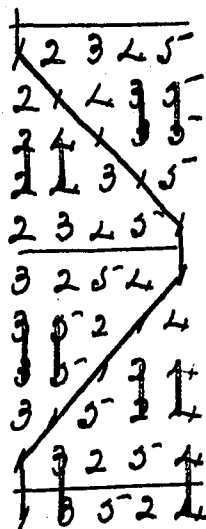 1 2 3 4 5
2 1 4 3 5
2 4 1 3 5
2 4 3 1 5
2 3 4 5 1
3 2 5 4 1
3 5 2 1 4
3 5 1 2 4
3 1 5 2 4
1 3 2 5 4
1 3 5 2 4